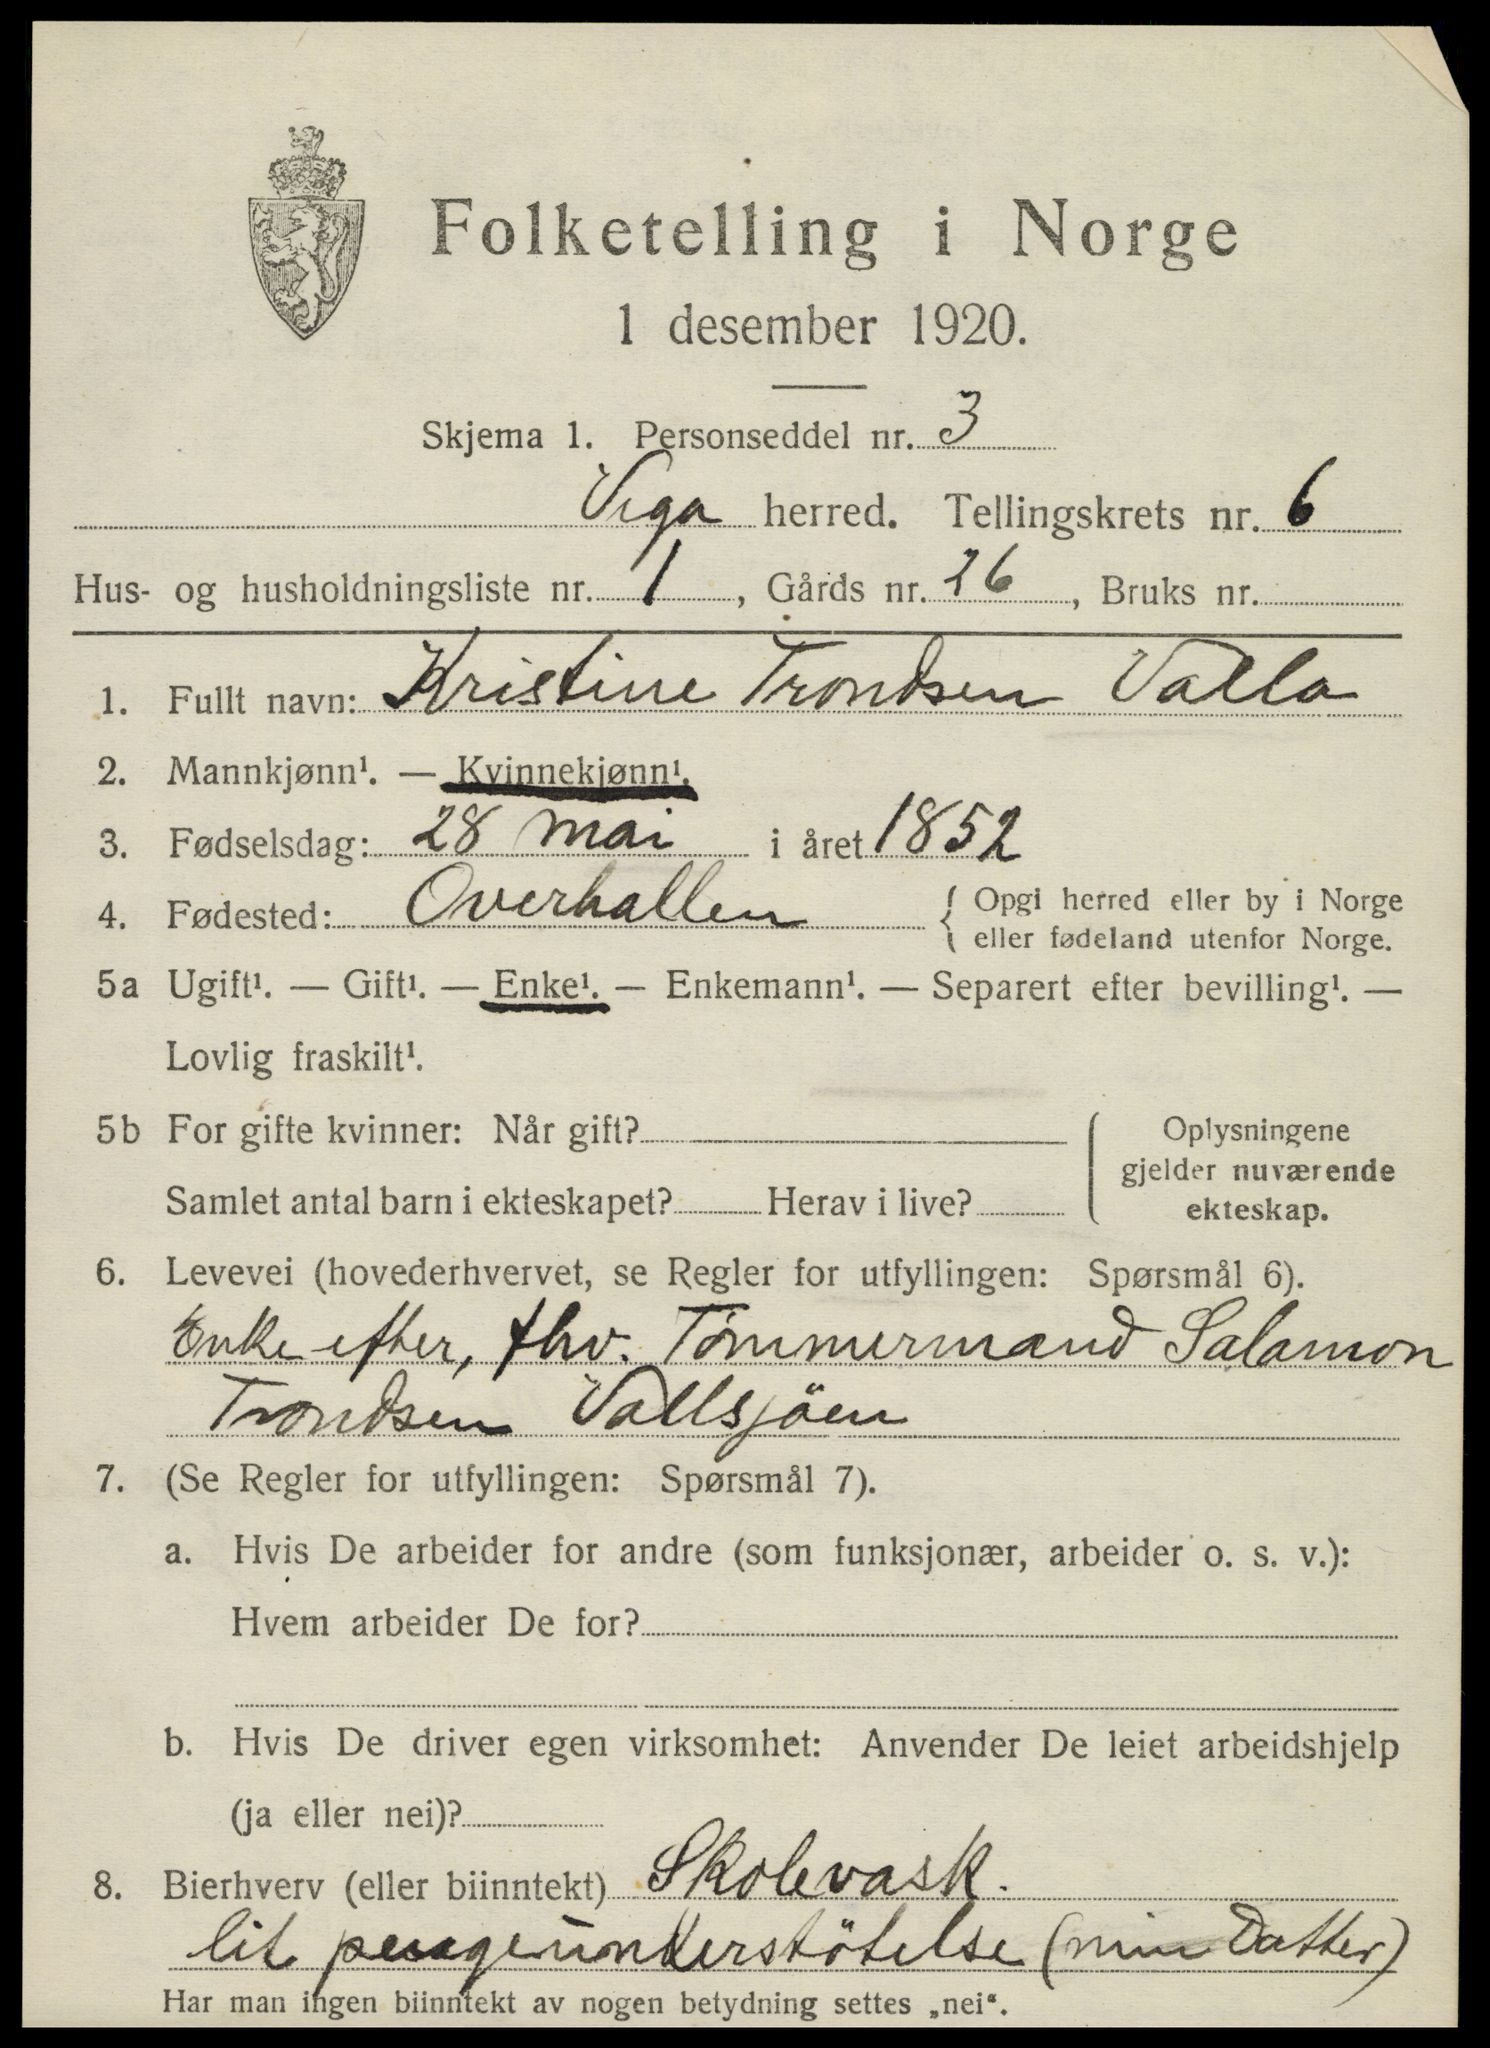 Folketelling i Norge
1 desember 1920.
Skjema 1. Personseddel nr. 3
Vega herred. Tellingskrets nr. 6
Hus- og husholdningsliste nr. 1, Gårds nr. 26, Bruks nr.
1. Fullt navn: Kristine Trondsen Valla
2. Mannkjønn¹. — Kvinnekjønn¹.
3. Fødselsdag: 28 mai i året 1852
4. Fødested: Overhallen { Opgi herred eller by i Norge
eller fødeland utenfor Norge.
5a Ugift¹. — Gift¹. — Enke¹. — Enkemann¹. — Separert efter bevilling¹. —
Lovlig fraskilt¹.
5b For gifte kvinner: Når gift?
Samlet antal barn i ekteskapet? Herav i live?
Oplysningene
gjelder nuværende
ekteskap.
6. Levevei (hovederhvervet, se Regler for utfyllingen: Spørsmål 6).
Enke efter, fhv. Tömmermand Salamon
Trondsen Vallsjöen
7. (Se Regler for utfyllingen: Spørsmål 7).
a. Hvis De arbeider for andre (som funksjonær, arbeider o. s. v.):
Hvem arbeider De for?
b. Hvis De driver egen virksomhet: Anvender De leiet arbeidshjelp
(ja eller nei)?
8. Bierhverv (eller biinntekt) Skolevask.
lit pengeunderstötelse (min Datter)
Har man ingen biinntekt av nogen betydning settes „nei“.